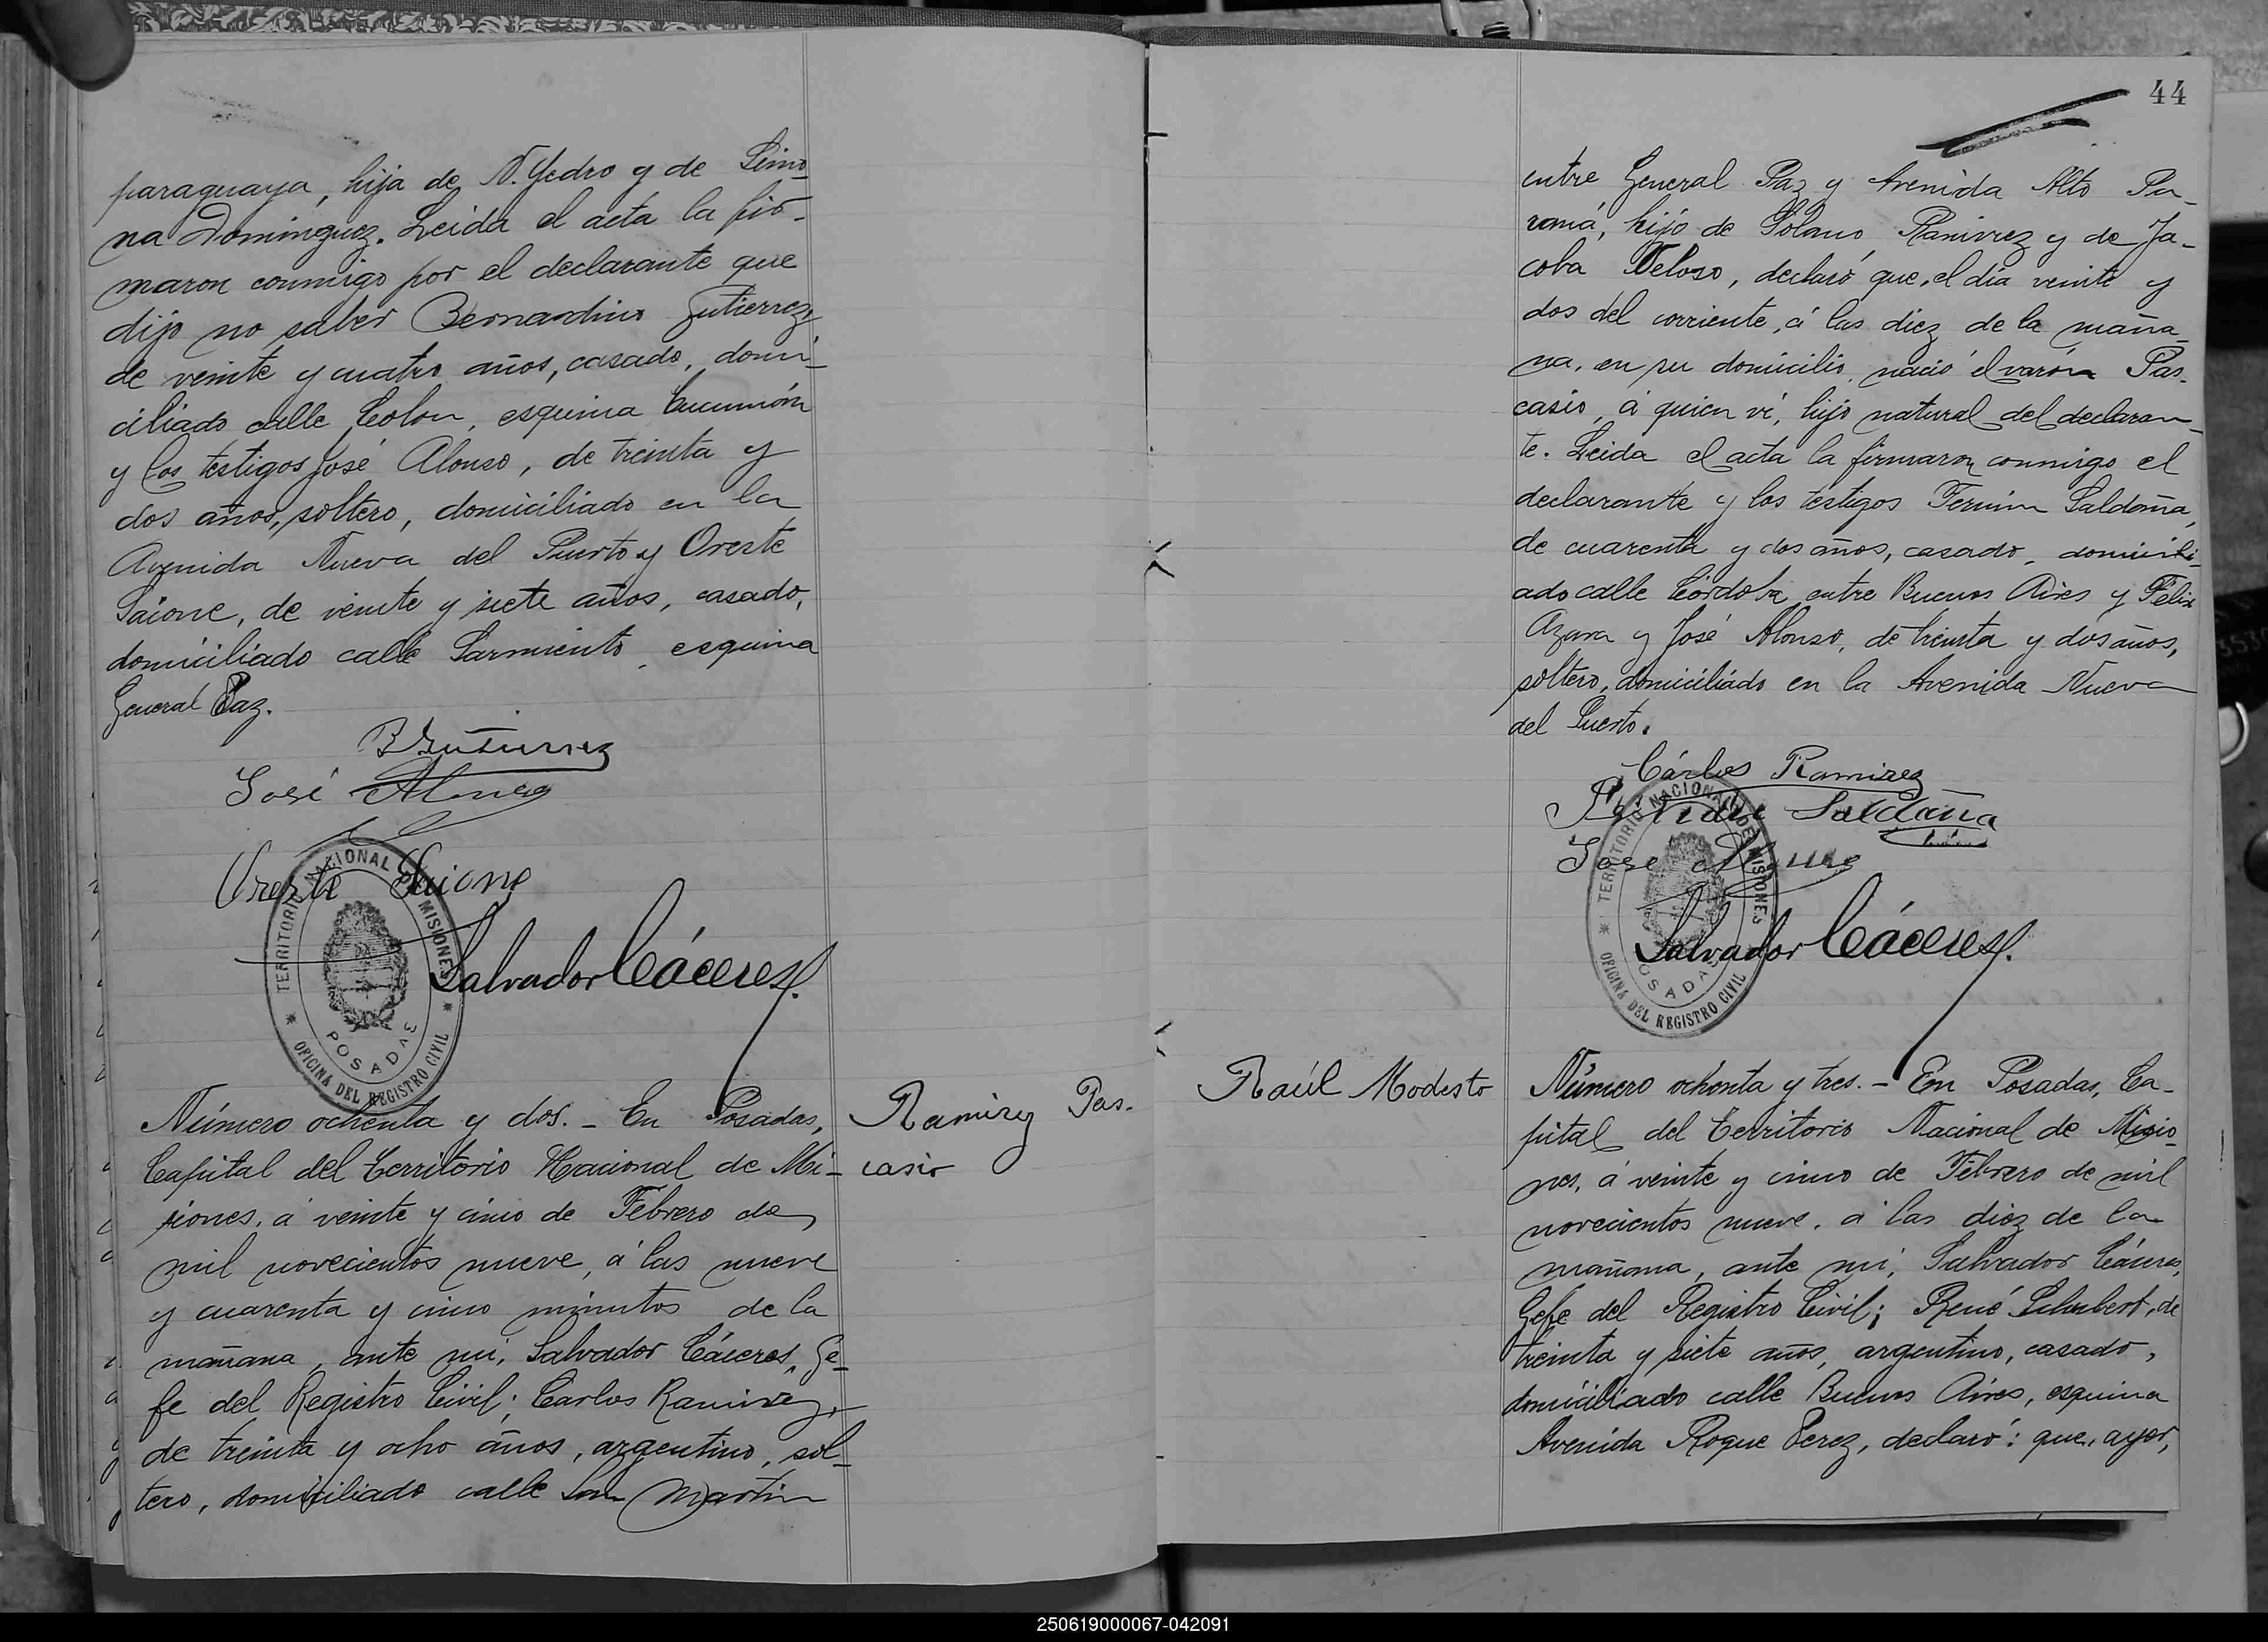 paraguaya, hija de N. Yedro y de Simo-
na Dominguez. Leida el acta la fir-
maron conmigo por el declarante que
dijo no saber Bernardino Gutierrez,
de veinte y cuatro años, casado, domi-
ciliado calle Colon, esquina Tucumán
y los testigos José Alonso, de treinta y
dos años, soltero, domiciliado en la
Avenida Nueva del Puerto y Oreste
Saione, de veinte y siete años, casado,
domiciliado calle Sarmiento, esquina
General Paz.
B Gutierrez
José Alonso
Oreste Saione
Salvador Cáceres
TERRITORIO NACIONAL DE MISIONES
POSADAS
OFICINA DEL REGISTRO CIVIL
Ramirez Pas-
casio
Número ochenta y dos. - En Posadas,
Capital del Territorio Nacional de Mi-
siones, á veinte y cinco de Febrero de
mil novecientos nueve, á las nueve
y cuarenta y cinco minutos de la
mañana, ante mi, Salvador Cáceres, Ge-
fe del Registro Civil; Carlos Ramirez,
de treinta y ocho años, argentino, sol-
tero, domiciliado calle San Martin
44
entre General Paz y Avenida Alto Pa-
raná, hijo de Solano Ramirez y de Ja-
coba Veloso, declaró que, el día veinte y
dos del corriente, á las diez de la maña-
na, en su domicilio, nació el varón Pas-
casio, á quien ví, hijo natural del declaran-
te. Leida el acta la firmaron conmigo el
declarante y los testigos Fermin Saldaña,
de cuarenta y dos años, casado, domicili-
ado calle Córdoba entre Buenos Aires y Félix
Azara y José Alonso, de treinta y dos años,
soltero, domiciliado en la Avenida Nueva
del Puerto.
Cárlos Ramirez
Saldaña
José Alonso
Salvador Cáceres
TERRITORIO NACIONAL DE MISIONES
POSADAS
OFICINA DEL REGISTRO CIVIL
Raúl Modesto
Número ochenta y tres. - En Posadas, Ca-
pital del Territorio Nacional de Misio-
nes, á veinte y cinco de Febrero de mil
novecientos nueve, á las diez de la
mañana, ante mi, Salvador Cáceres,
Gefe del Registro Civil; René Schubert, de
treinta y siete años, argentino, casado,
domiciliado calle Buenos Aires, esquina
Avenida Roque Perez, declaró: que, ayer,
250619000067-042091